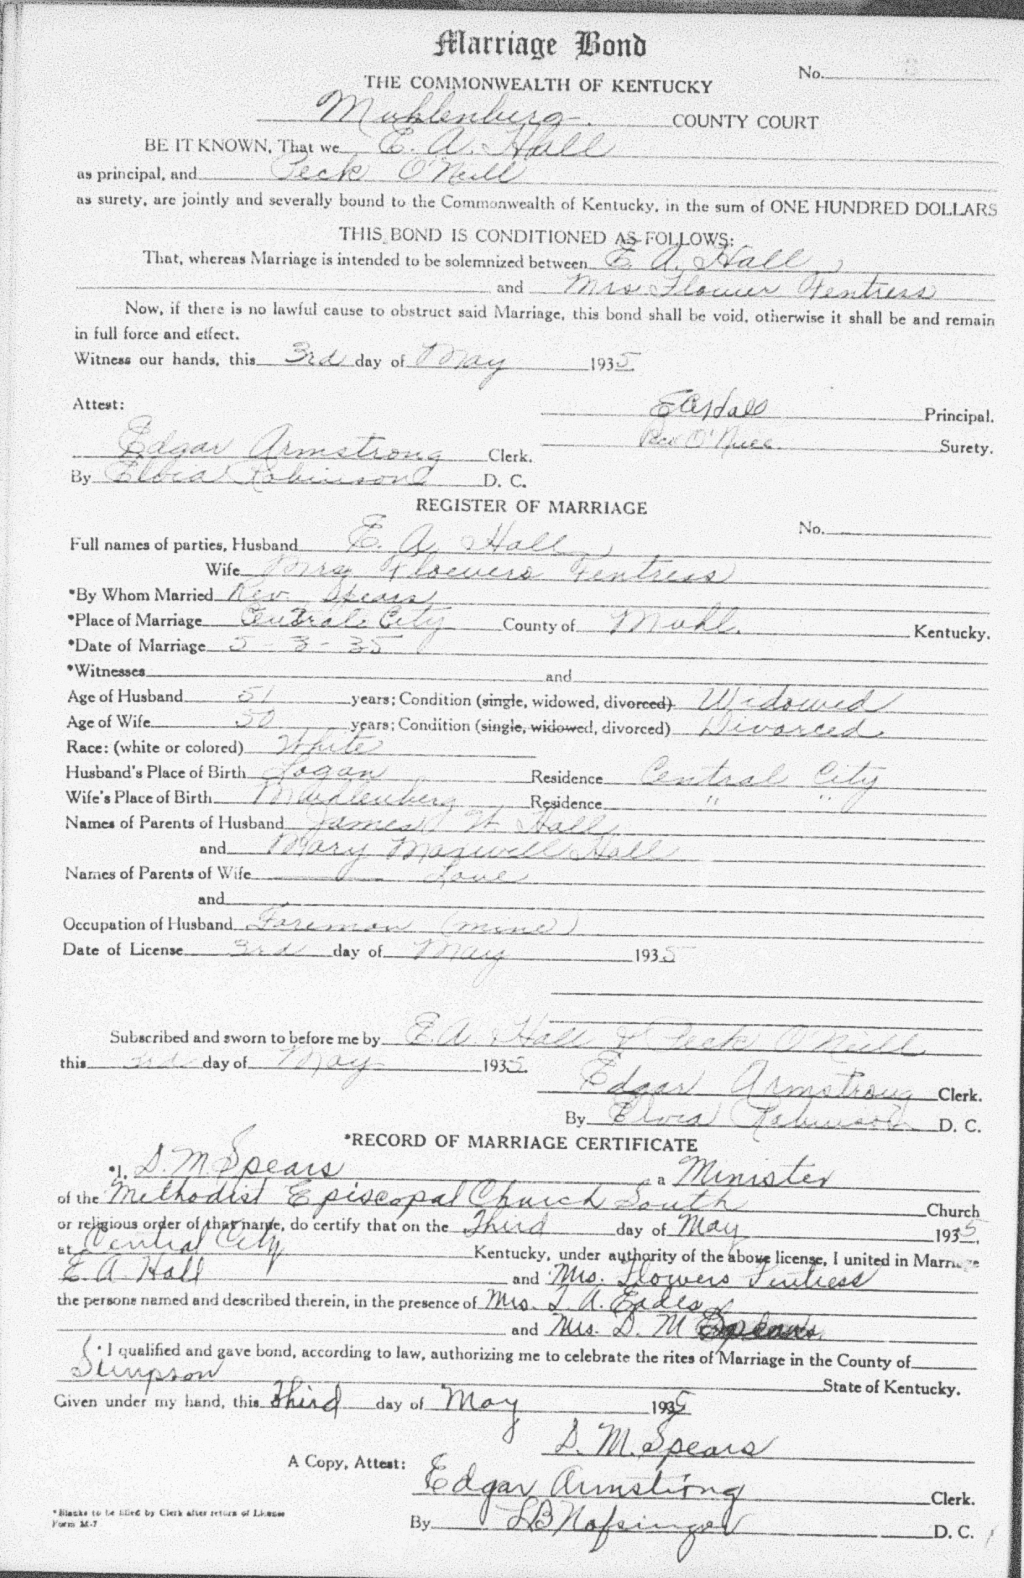 Marriage Bond
No.
THE COMMONWEALTH OF KENTUCKY
Muhlenberg. COUNTY COURT
BE IT KNOWN, That we E. A. Hall
as principal, and Peck O'Neill
as surety, are jointly and severally bound to the Commonwealth of Kentucky, in the sum of ONE HUNDRED DOLLARS
THIS BOND IS CONDITIONED AS FOLLOWS:
That, whereas Marriage is intended to be solemnized between E. A. Hall
and Mrs. Flower Fentress
Now, if there is no lawful cause to obstruct said Marriage, this bond shall be void, otherwise it shall be and remain
in full force and effect.
Witness our hands, this 3rd day of May 1935
Attest: E A Hall Principal.
Peck O'Neill Surety.
Edgar Armstrong Clerk.
By Elvia Robinson D. C.
REGISTER OF MARRIAGE
No.
Full names of parties, Husband E. A. Hall
Wife Mrs Flowers Fentress
*By Whom Married Rev Spears
*Place of Marriage Central City County of Muhl. Kentucky.
*Date of Marriage 5-3-35
*Witnesses and
Age of Husband 51 years; Condition (single, widowed, divorced) Widowed
Age of Wife 50 years; Condition (single, widowed, divorced) Divorced
Race: (white or colored) White
Husband's Place of Birth Logan Residence Central City
Wife's Place of Birth Muhlenberg Residence " "
Names of Parents of Husband James W Hall
and Mary Maxwell Hall
Names of Parents of Wife Love
and
Occupation of Husband Foreman (mine)
Date of License 3rd day of May 1935
Subscribed and sworn to before me by E. A. Hall & Peck O'Neill
this 3rd day of May 1935.
Edgar Armstrong Clerk.
By Elvia Robinson D. C.
*RECORD OF MARRIAGE CERTIFICATE
*I, D. M. Spears a Minister
of the Methodist Episcopal Church South Church
or religious order of that name, do certify that on the Third day of May 1935,
at Central City Kentucky, under authority of the above license, I united in Marriage
E. A. Hall and Mrs. Flowers Fentress
the persons named and described therein, in the presence of Mrs. L. A. Eades
and Mrs. D. M Spears
*I qualified and gave bond, according to law, authorizing me to celebrate the rites of Marriage in the County of
Simpson State of Kentucky.
Given under my hand, this Third day of May 1935
D. M. Spears
A Copy, Attest: Edgar Armstrong Clerk.
By LB Nofsinger D. C.
*Blanks to be filled by Clerk after return of License
Form M-7